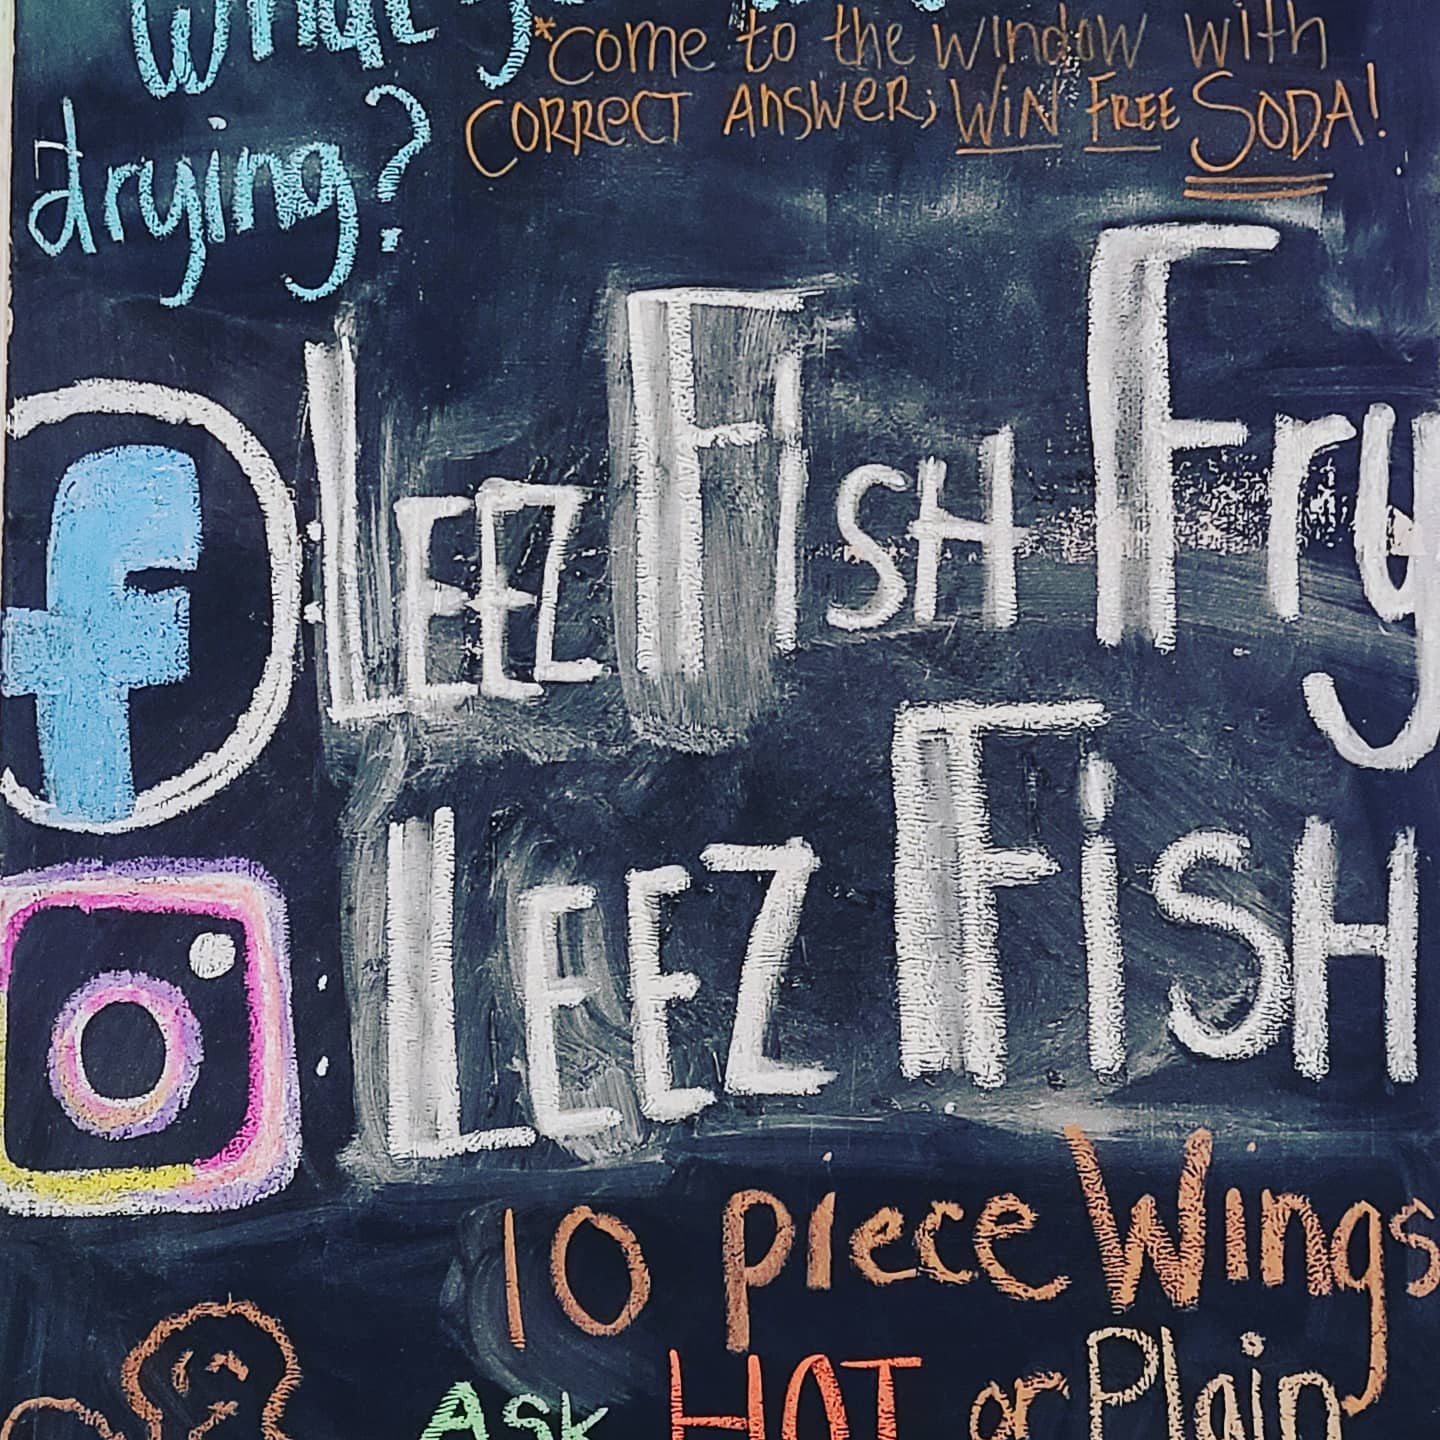 What
*Come to the window with
drying?
CORRECT Answer; WIN FREE SODA!
f
: LEEZ FISH Fry
: LEEZ FISH
10 piece Wings
Ask HOT or Plain